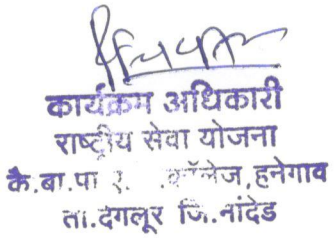 कार्यक्रम अधिकारी
राष्ट्रीय सेवा योजना
कै.बा.पा कॉलेज,हनेगाव
ता.देगलूर जि.नांदेड